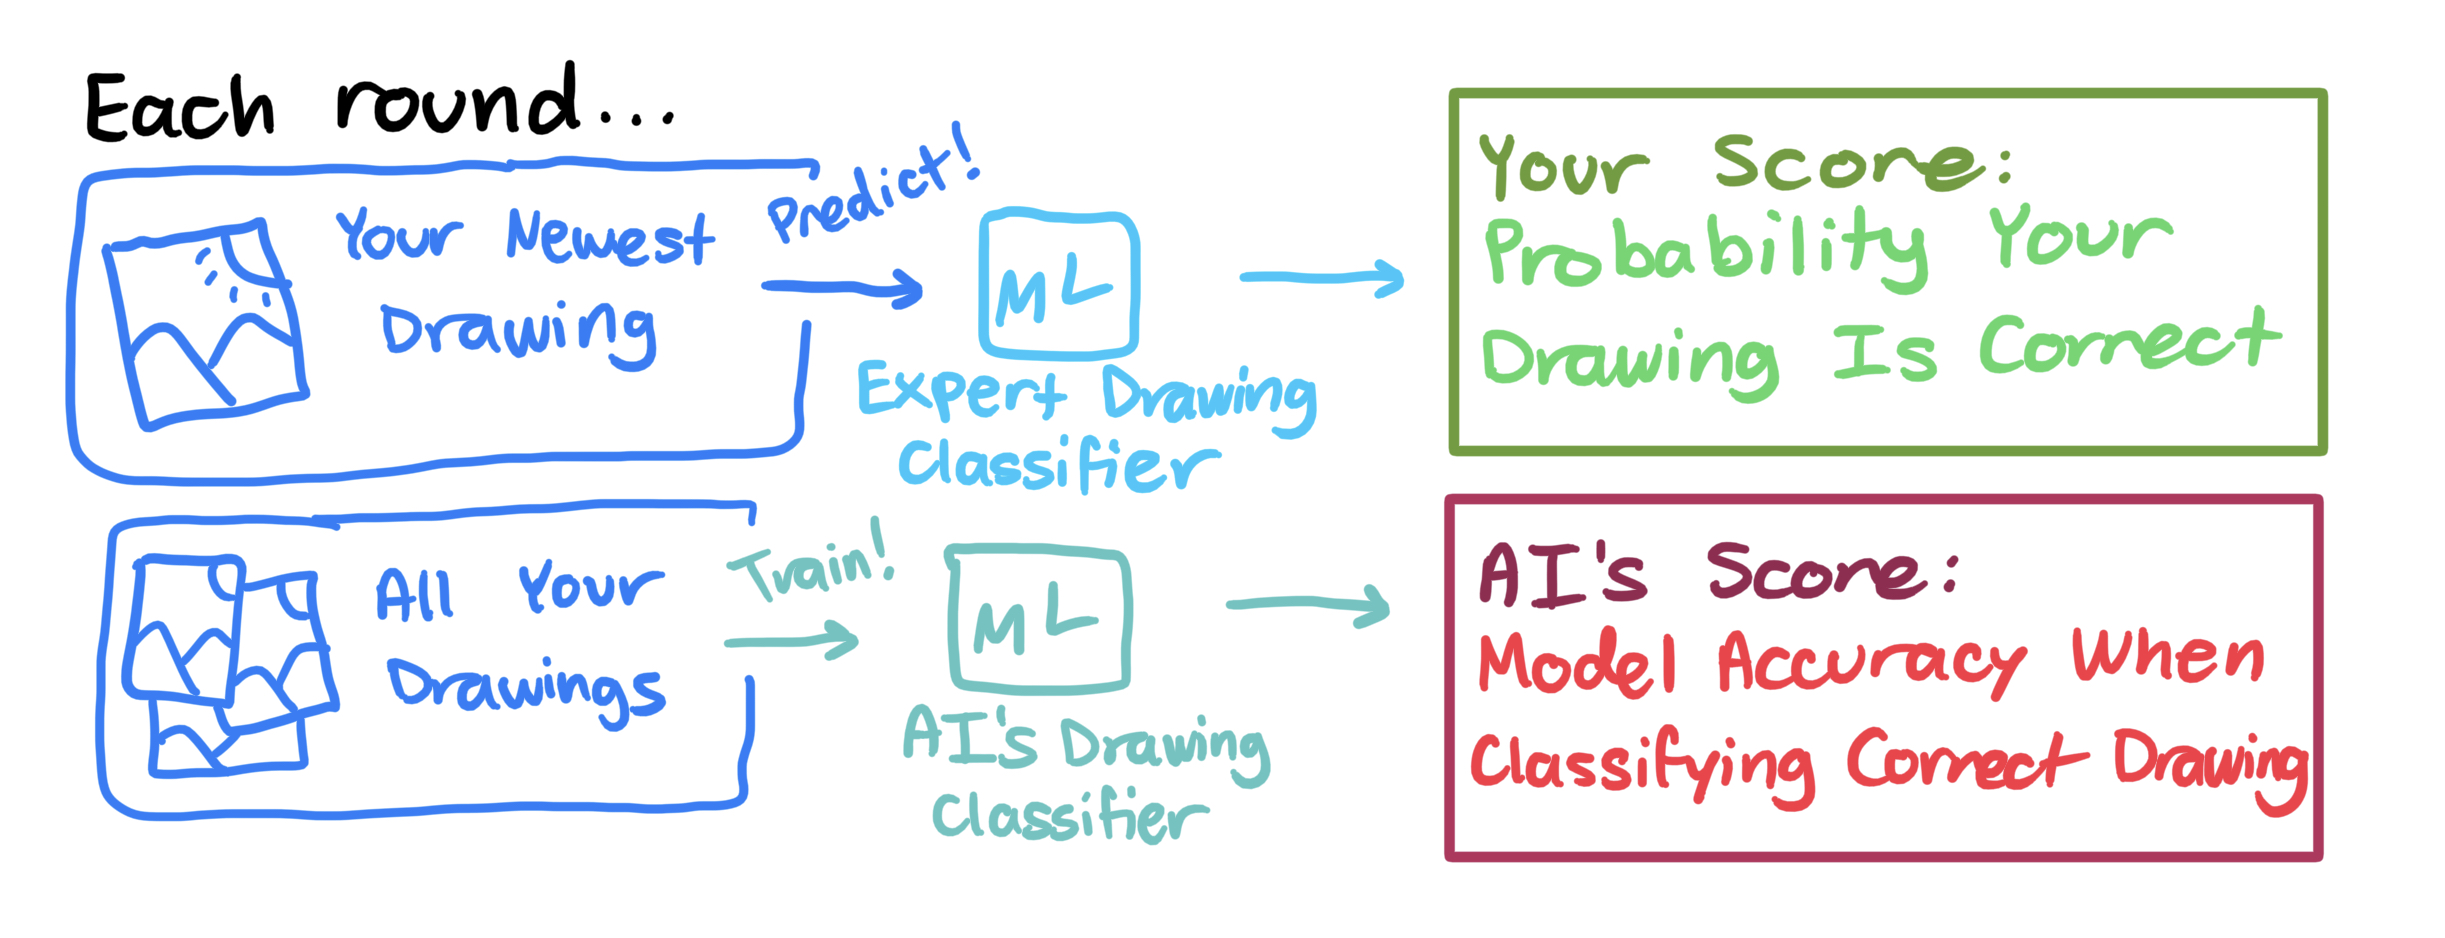 Each round...
Your Newest
Drawing
Predict!
ML
Expert Drawing
Classifier
Your Score:
Probability Your
Drawing Is Correct
All Your
Drawings
Train!
ML
AI's Drawing
Classifier
AI's Score:
Model Accuracy When
Classifying Correct Drawing